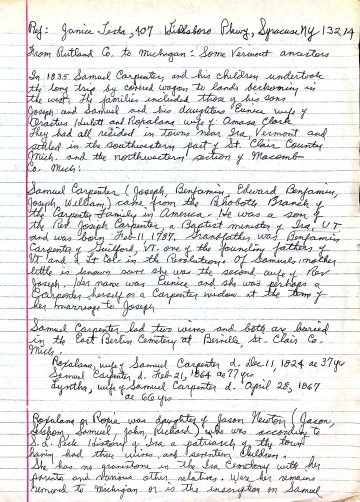 Ref: Janice Testa, 407 Hillsboro Pkwy, Syracuse NY 13214
From Rutland Co. to Michigan: Some Vermont ancestors
In 1835 Samuel Carpenter, and his children undertook
the long trip by covered wagon to lands beckoning in
the west. The families included those of his sons
Joseph and Samuel and his daughters Eunice wife of
Orastus Hulett and Roxalana wife of Amasa Clark
They had all resided in towns near Ira, Vermont and
settled in the southwestern part of St. Clair County,
Mich. and the northwestern section of Macomb
Co. Mich:
Samuel Carpenter (Joseph, Benjamin, Edward, Benjamin,
Joseph, William) came from the Rehoboth Branch of
the Carpenter Family in America. He was a son of
the Rev. Joseph Carpenter, a Baptist minister of Ira, VT.
and was born Feb 11, 1787. Grandfather was Benjamin
Carpenter of Guilford, VT. one of the founding fathers of
VT and a Lt Col. in the Revolution. Of Samuel's mother
little is known save she was the second wife of Rev
Joseph. Her name was Eunice and she was perhaps a
Carpenter herself or a Carpenter widow at the time of
her marriage to Joseph
Samuel Carpenter had two wives and both are buried
in the East Berlin Cemetery at Berville, St. Clair Co.
Mich.
Roxalana, wife of Samuel Carpenter d. Dec 11, 1824 ae 37yr
Samuel Carpenter d. Feb. 21, 1864 ae 77 yrs
Cyntha, wife of Samuel Carpenter d. April 28, 1867
ae 66 yrs
Roxalana or Roxie was daughter of Jason Newton (Jason,
Gideon, Samuel, John, Richard) who was according to
S. L. Peck History of Ira a patriarch of the town
having had three wives and seventeen children.
She has no gravestone in the Ira Cemetery with her
parents and various other relatives. Were her remains
removed to Michigan or is the inscription on Samuel